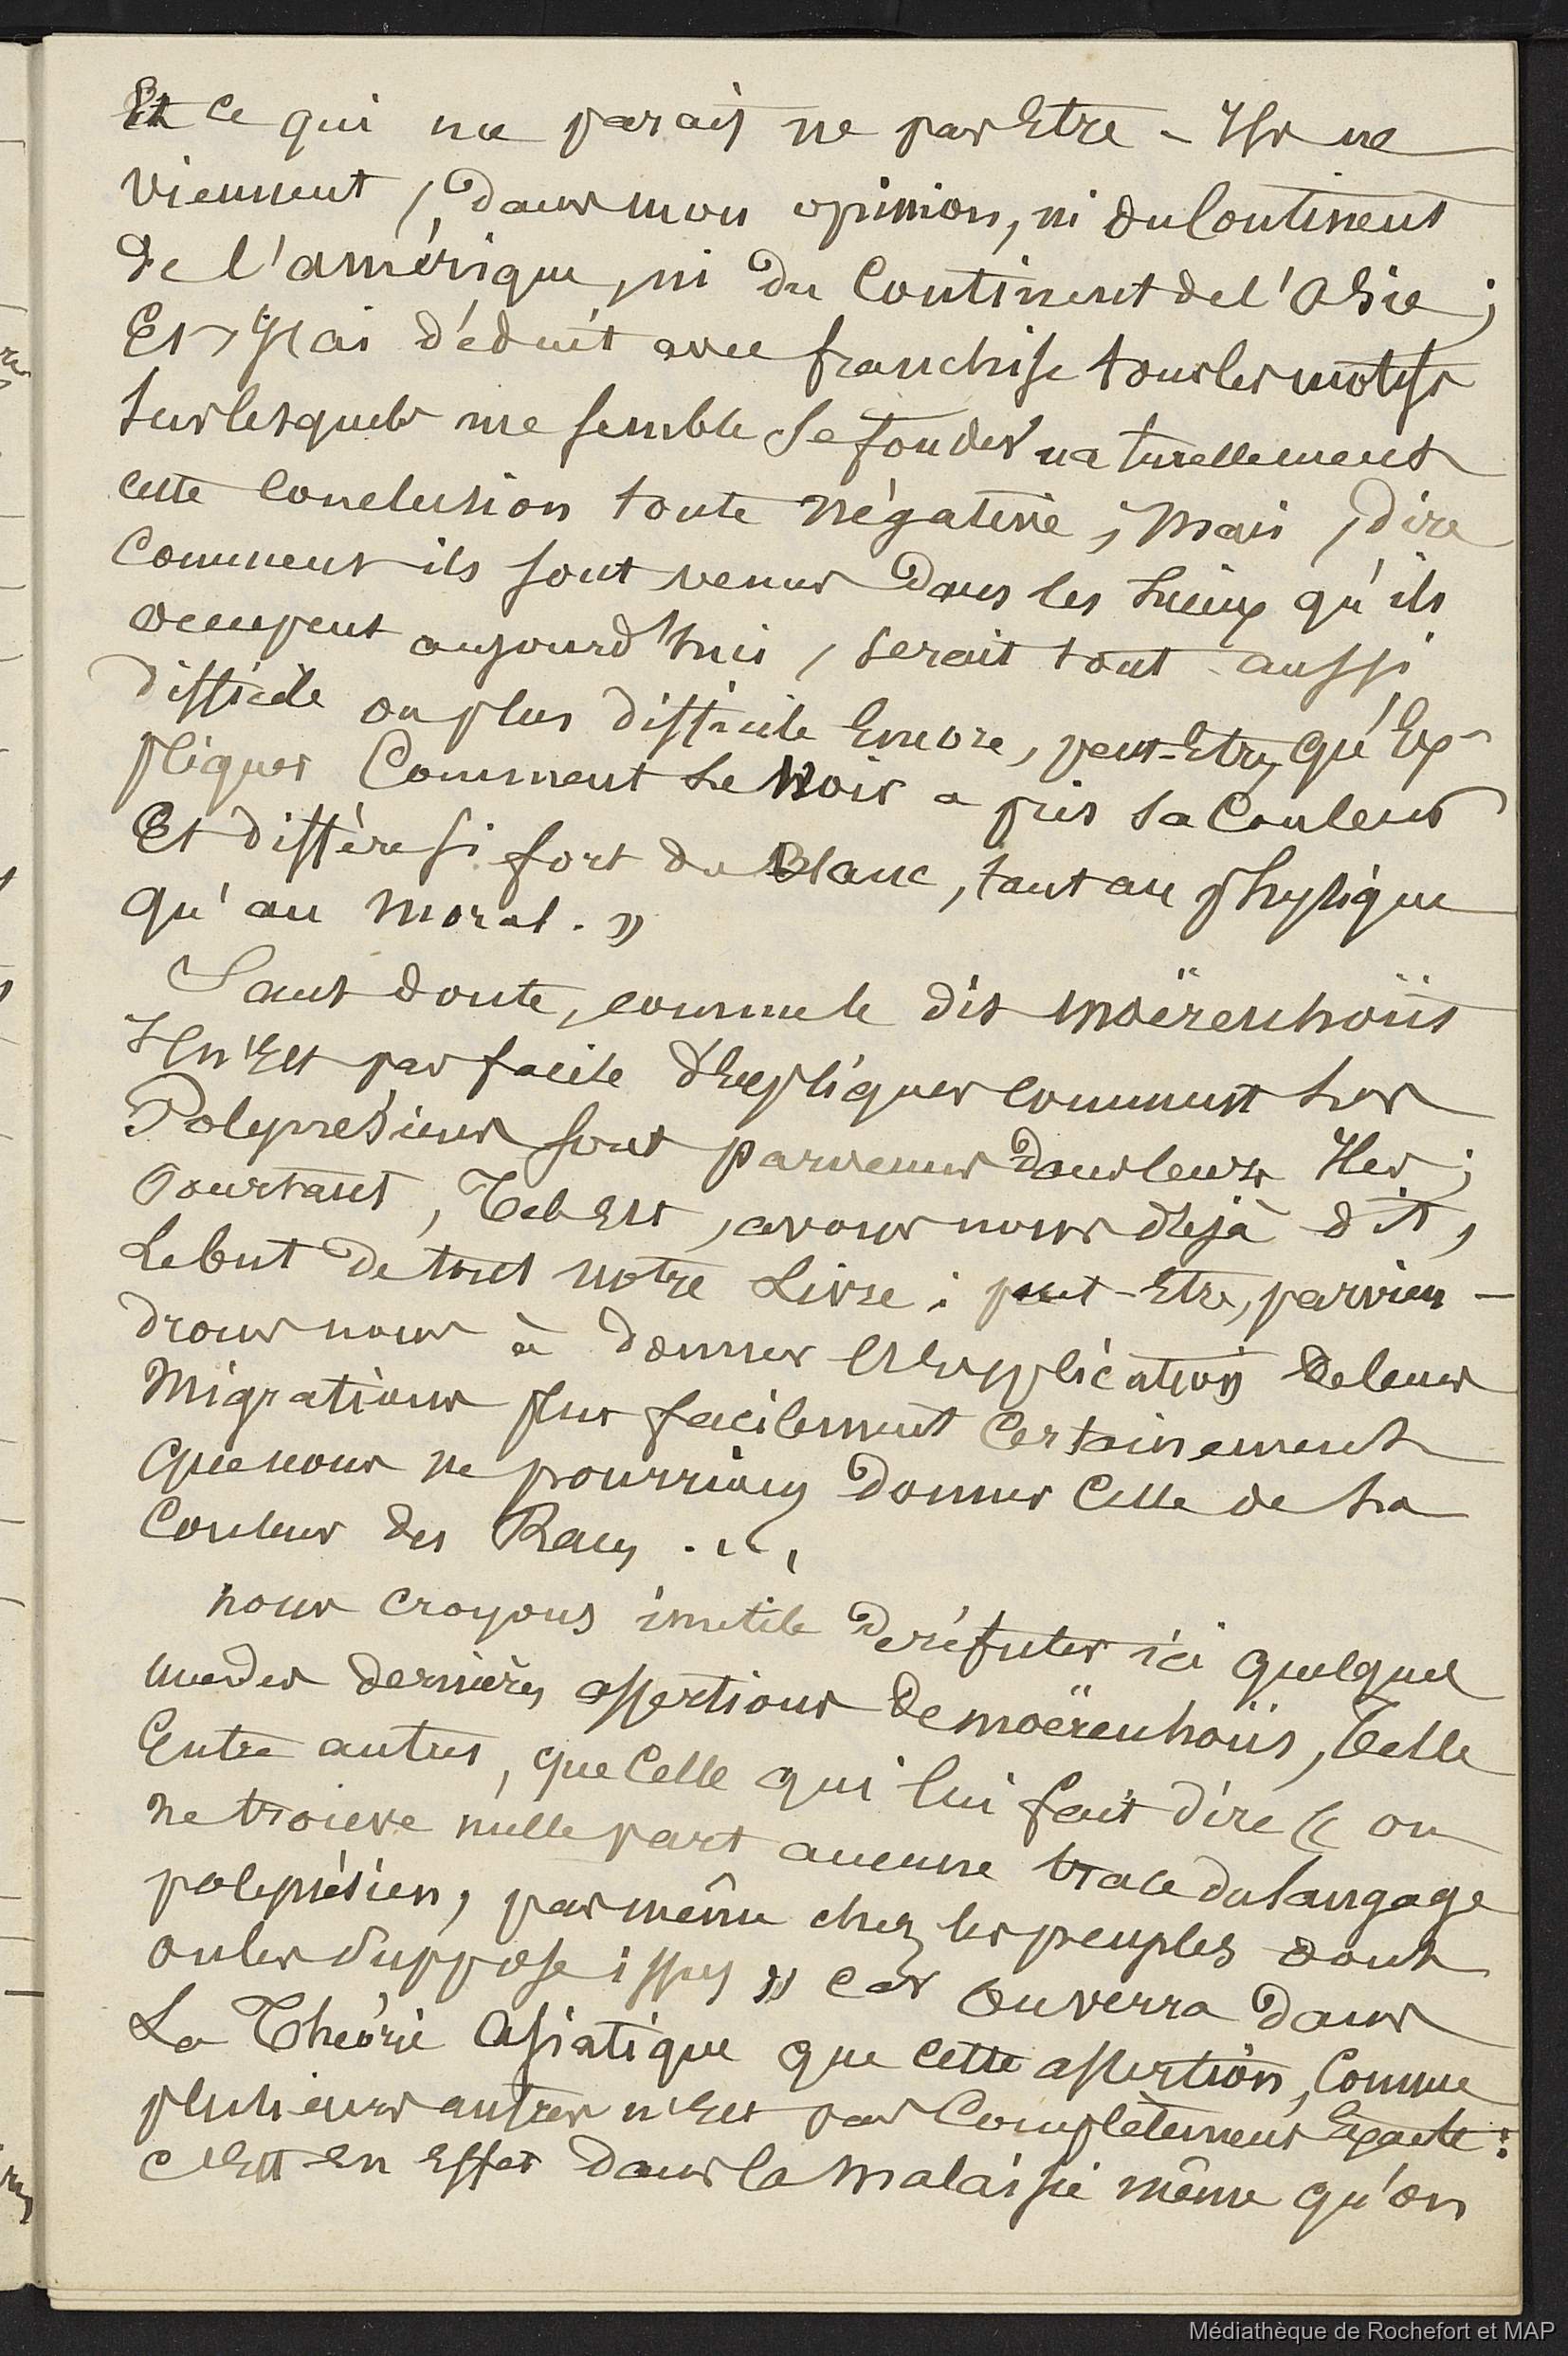 Et ce qui me parait ne pas Etre – Ils ne
viennent, dans mon opinion, ni du Continent
de l'amérique, ni du Continent de l'Asie ;
Et, j'ai déduit avec franchise tous les motifs
sur lesquels me semble se fonder naturellement
cette Conclusion toute négative ; mais, dire
Comment ils sont venus dans les lieux qu'ils
occupent aujourd'hui, serait tout aussi
difficile ou plus difficile Encore, peut-Etre, qu'Ex-
pliquer Comment le Noir a pris sa Couleur
Et diffère si fort du Blanc, tant au physique
qu'au moral. »
Sans doute, comme le dit Moërenhoüt
Il n'Est pas facile d'Expliquer comment les
Polynésiens sont parvenus dans leurs Iles ;
Pourtant, Tel Est, avons nous déjà dit,
Le but de tout notre Livre : peut-Etre, parvien-
drons nous à donner l'Explication de leurs
Migrations plus facilement Certainement
que nous ne pourrions donner Celle de la
Couleur des Races ...
nous croyons inutile de réfuter ici quelques
unes des dernières assertions de moërenhoüt, Telle
Entre autres, que Celle qui lui fait dire « on
ne trouve nulle part aucune trace du langage
polynésien, pas même chez les peuples dont
on les suppose issus » car on verra dans
La Théorie Asiatique que cette assertion, Comme
plusieurs autres n'Est pas Complètement Exacte :
c'Est En Effet dans la Malaisie même qu'on
Médiathèque de Rochefort et MAP